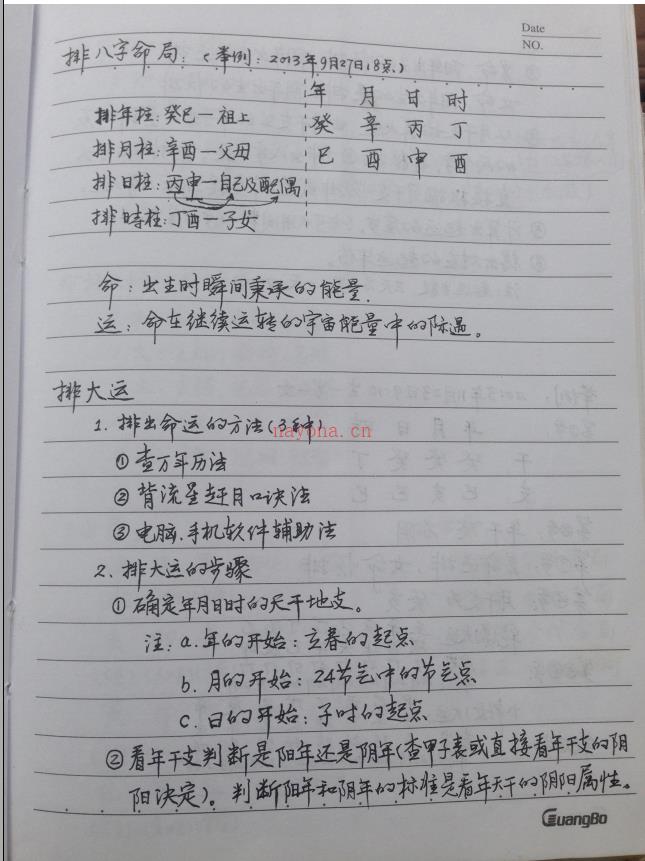 Date
NO.
排八字命局：（举例：2013年9月27日18点）
年 月 日 时
排年柱：癸巳—祖上 癸 辛 丙 丁
排月柱：辛酉—父母 巳 酉 申 酉
排日柱：丙申—自己及配偶
排時柱：丁酉—子女
命：出生时瞬间秉承的能量.
运：命在继续运转的宇宙能量中的际遇。
排大运
1. 排出命运的方法(3种)
nayona.cn
①查万年历法
②背流星赶月口诀法
③电脑.手机软件辅助法
2. 排大运的步骤
①确定年月日时的天干地支。
注：a.年的开始：立春的起点
b. 月的开始：24节气中的节气点
c. 日的开始：子时的起点
②看年干支判断是阳年还是阴年(查甲子表或直接看年干支的阴
阳决定)。判断阳年和阴年的标准是看年天干的阴阳属性。
GuangBo